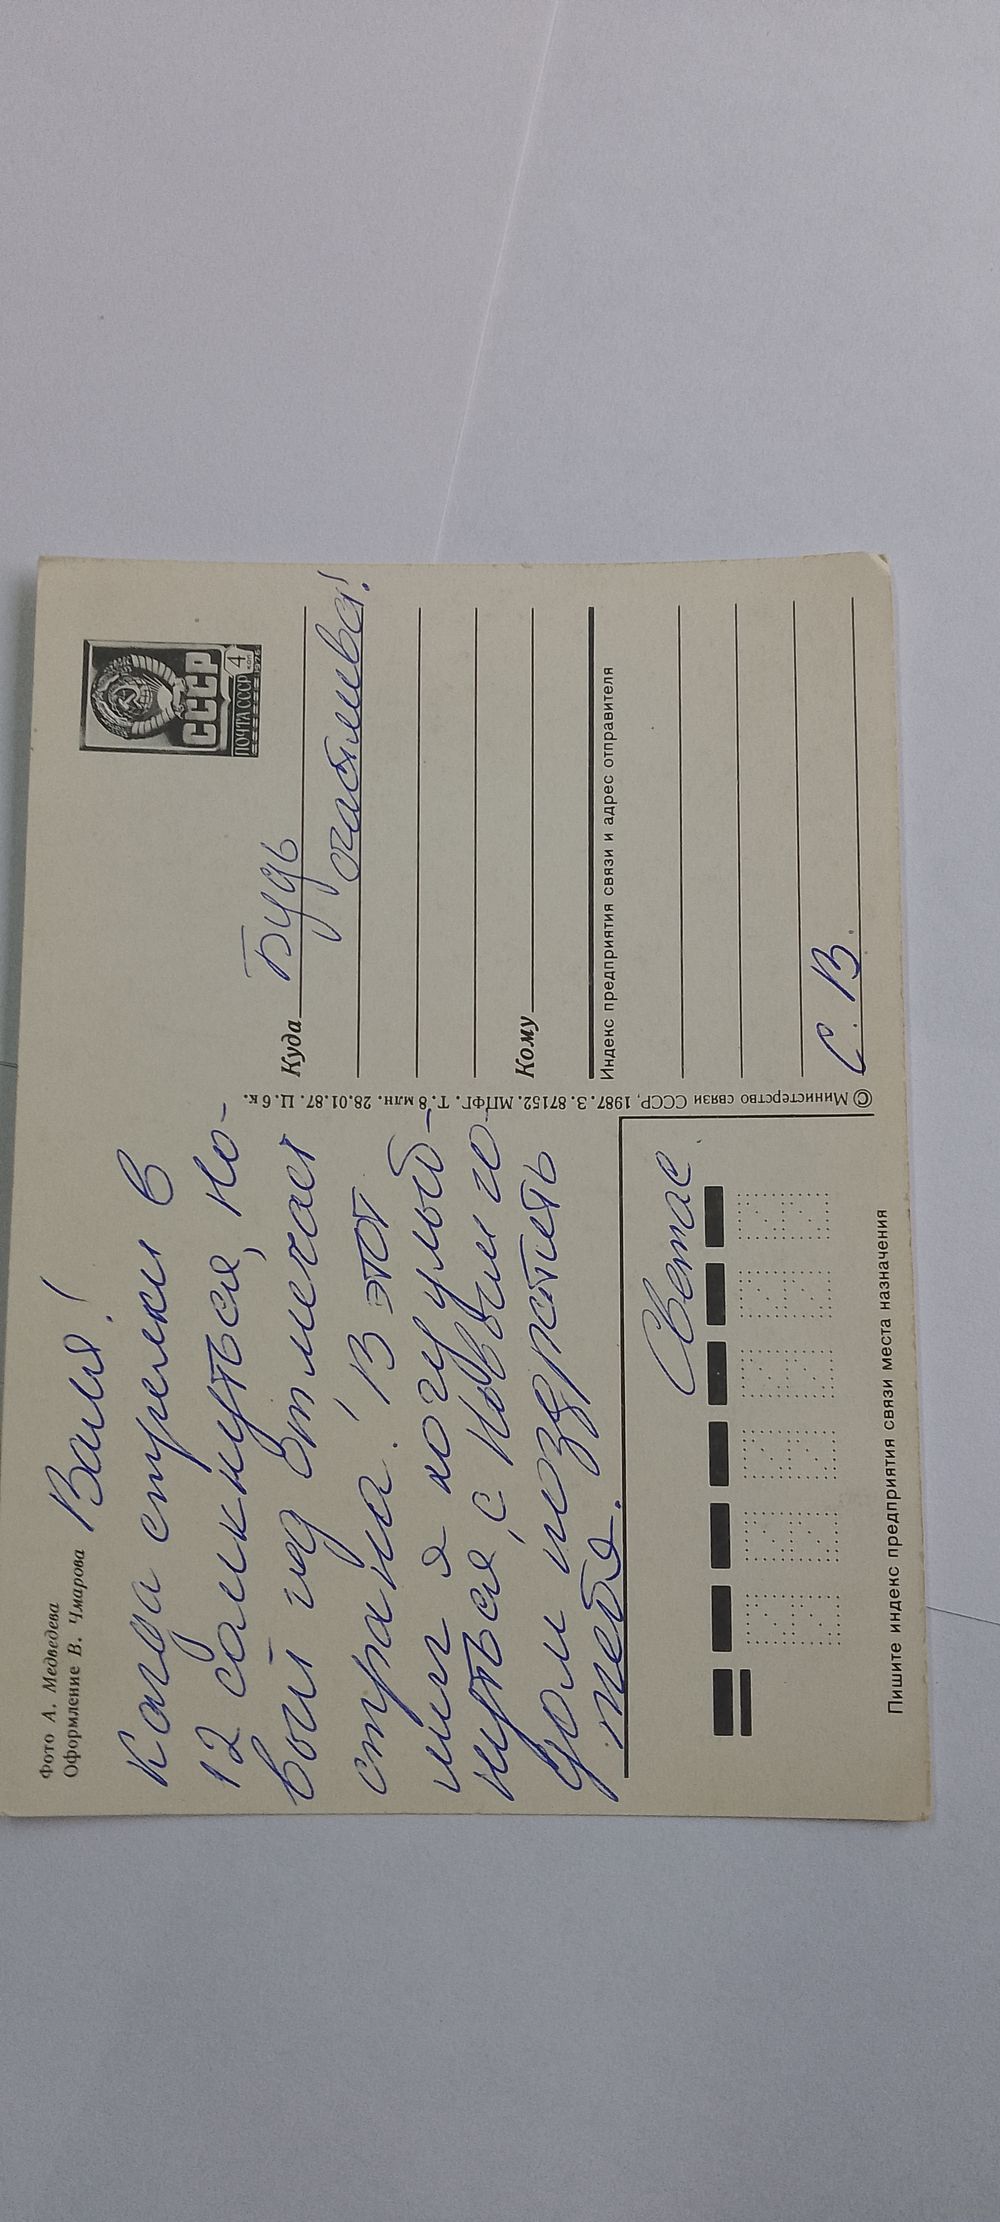 Фото А. Медведева
Оформление В. Чмарова
Валя!
Когда стрелки в
12 сомкнуться, Но-
вый год отмечает
страна. В этот
миг я хочу улыб-
нуться, с Новым го-
дом поздравить
тебя.
Светае
Пишите индекс предприятия связи места назначения
© Министерство связи СССР, 1987. З. 87152. МПФГ. Т. 8 млн. 28.01.87. Ц. 6 к.
СССР
ПОЧТА СССР 4
коп
Куда Будь
счастлива!
Кому
Индекс предприятия связи и адрес отправителя
С. В.